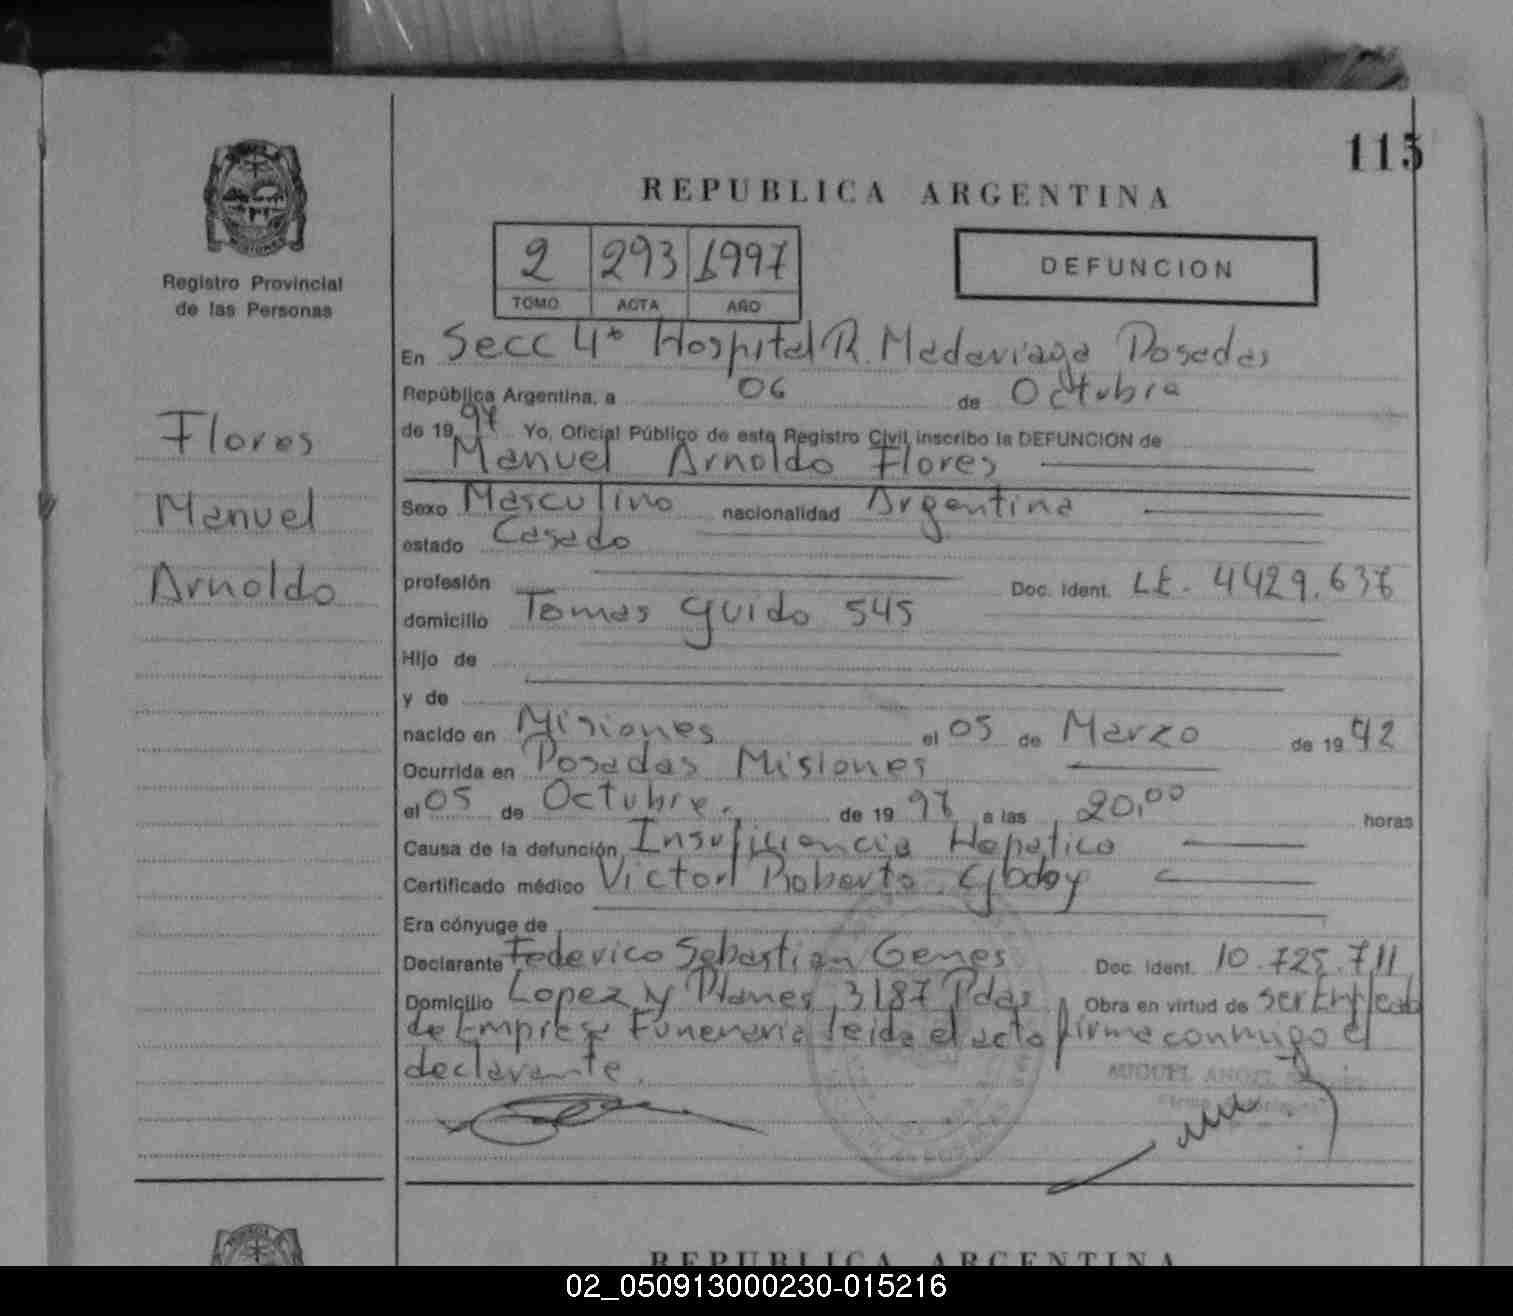 115
REPUBLICA ARGENTINA
Registro Provincial
de las Personas
2 293 1997
TOMO ACTA AÑO
DEFUNCION
Flores
Manuel
Arnoldo
En Secc 4ª Hospital R. Madariaga Posadas
República Argentina, a 06 de Octubre
de 1997 Yo, Oficial Público de este Registro Civil inscribo la DEFUNCION de
Manuel Arnoldo Flores
Sexo Masculino nacionalidad Argentina
estado Casado
profesión Doc. Ident. LE. 4429.636
domicilio Tomas Guido 545
Hijo de
y de
nacido en Misiones el 05 de Marzo de 1942
Ocurrida en Posadas Misiones
el 05 de Octubre. de 1997 a las 20,00 horas
Causa de la defunción Insuficiencia Hepatica
Certificado médico Victor Roberto Godoy
Era cónyuge de
Declarante Federico Sebastian Genes Doc. Ident. 10.725.711
Domicilio Lopez y Planes 3187 Pdas Obra en virtud de ser Empleado
de Empresa Funeraria leida el acta firma conmigo el
declarante.
MIGUEL ANGEL
REPUBLICA ARGENTINA
02_050913000230-015216